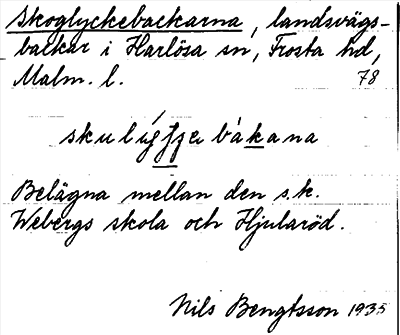 Skoglyckebackarna, landsvägs-
backar i Harlösa sn, Frosta hd,
Malm. l. 78
bákana
Belägna mellan den s.k.
Webergs skola och Hjularöd.
Nils Bengtsson 1935